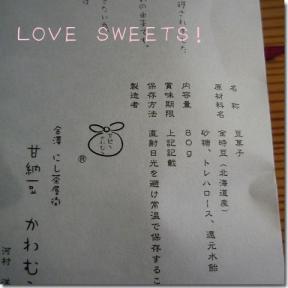 LOVE SWEETS!
名 称 豆菓子
原材料名 金時豆(北海道産)
砂糖、トレハロース、還元水飴
内容量 80g
賞味期限 上記記載
保存方法 直射日光を避け常温で保存するこ
製造者
®
金澤 にし茶屋街
甘納豆 かわむ
河村